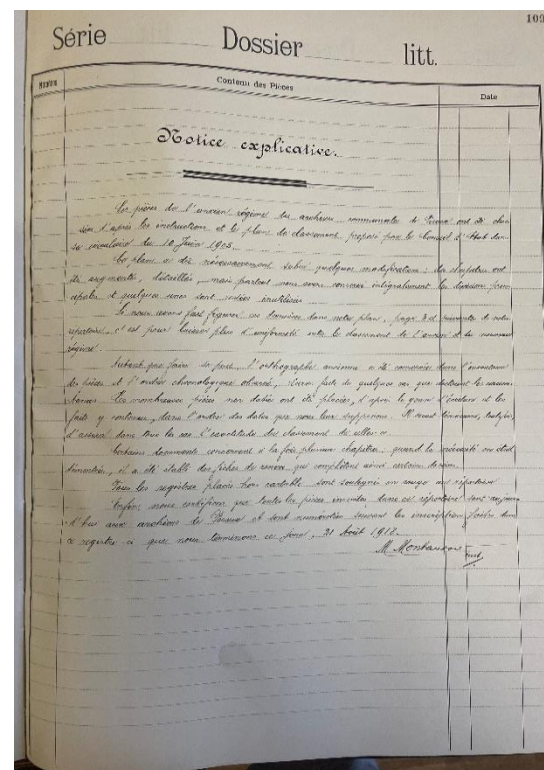 109
Série Dossier litt.
Numéros Contenu des Pièces Date
Notice explicative.
Les pièces de l'ancien régime des archives communales de ont été clas-
sées d'après les instructions et le plan de classement, proposé par le Conseil d'Etat dans
sa circulaire du 10 Juin 1903.
Ce plan a dû nécessairement subir quelques modifications: des chapitres ont
été augmentés, détaillés, mais partout nous avons conservé intégralement les divisions prin-
cipales et quelques unes sont restées inutilisées.
Si nous avons fait figurer ces dernières dans notre plan, pages 3 et suivantes de notre
répertoire, c'est pour laisser plus d'uniformité entre le classement de l'ancien et du nouveau
régime.
Autant que faire se peut, l'orthographe ancienne a été conservée dans l'inventaire
des pièces et l'ordre chronologique observé,
De nombreuses pièces non datées ont été placées, d'après le genre d'écriture et les
faits y contenus, dans l'ordre des dates que nous leur supposons. Il serait téméraire, toutefois,
d'assurer dans tous les cas l'exactitude du classement de celles-ci.
Certains documents concernent à la fois plusieurs chapitres, quand la nécessité en était
démontrée, il a été établi des fiches de renvoi qui complètent ainsi certains dossiers.
Tous les registres placés hors cartable sont soulignés en rouge au répertoire.
Enfin nous certifions que toutes les pièces inscrites dans ce répertoire sont aujour-
d'hui aux archives de et sont numérotées suivant les inscriptions faites dans
ce registre ci que nous terminons ce jour, 21 Août 1912.
M. Montandon